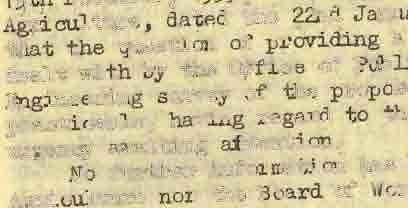 Agriculture, dated the 22nd Janu
that the question of providing a
dealt with by the Office of Publ
Engineering survey of the propos
particularly having regard to th
urgency awaiting attention.
No further information has
Agriculture nor the Board of Wor